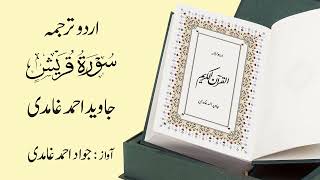 اردو ترجمہ
سُوۡرَةُ قُرَيۡش
جاوید احمد غامدی
آواز : جواد احمد غامدی
القرآن الکریم
جاوید احمد غامدی